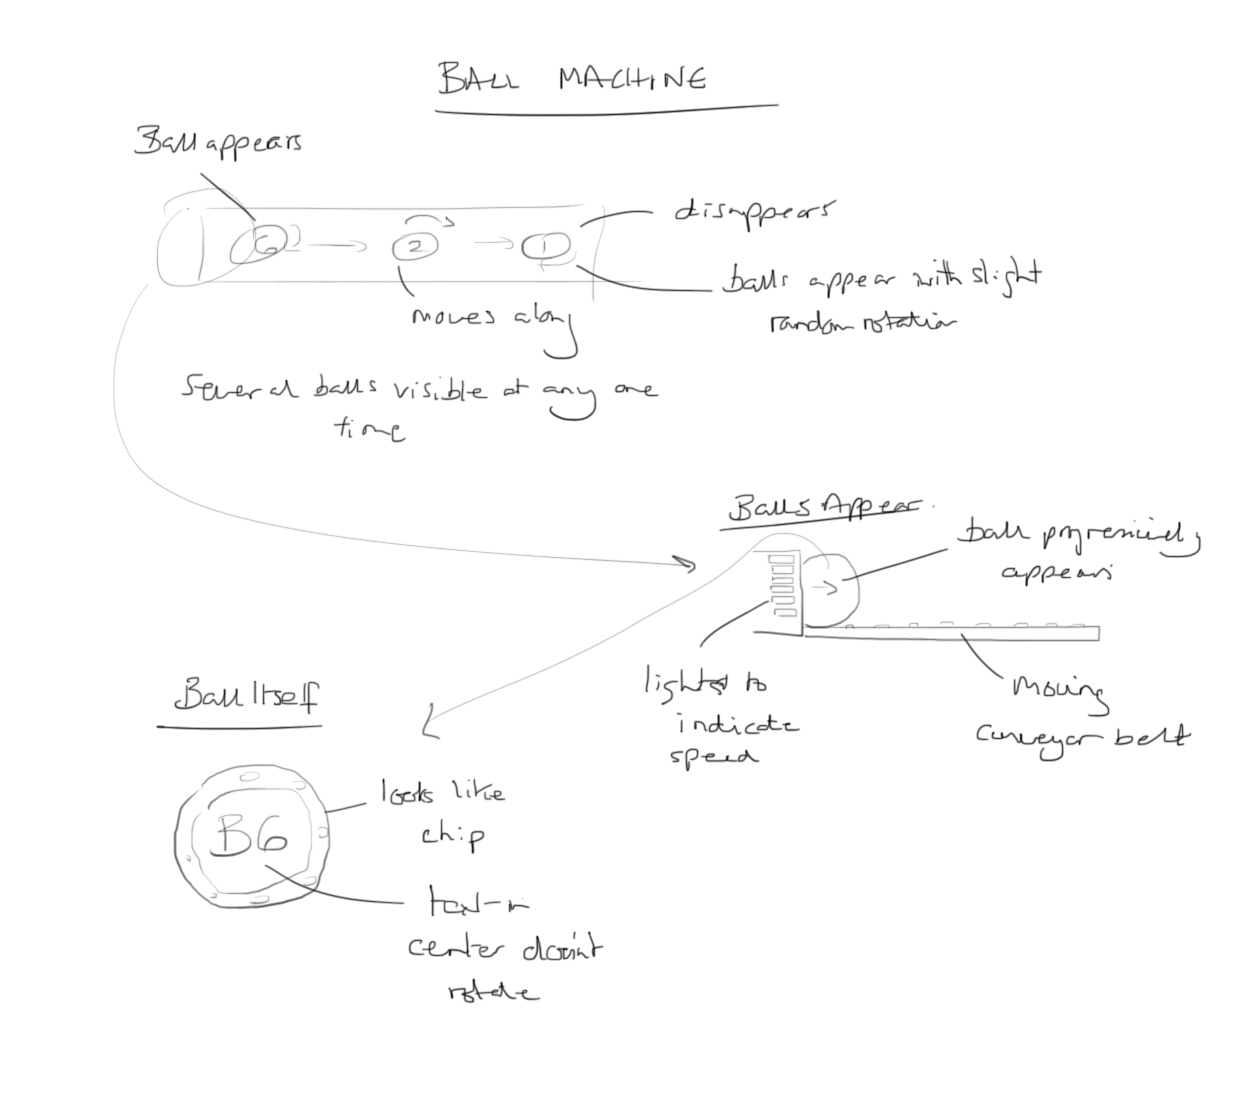 BALL MACHINE
Ball appears
disappears
6
2
1
balls appear with slight
random rotation
moves along
Several balls visible at any one
time
Balls Appear.
ball progressively
appears
lights to
indicate
speed
moving
conveyor belt
Ball Itself
looks like
chip
B6
text in
center doesn't
rotate